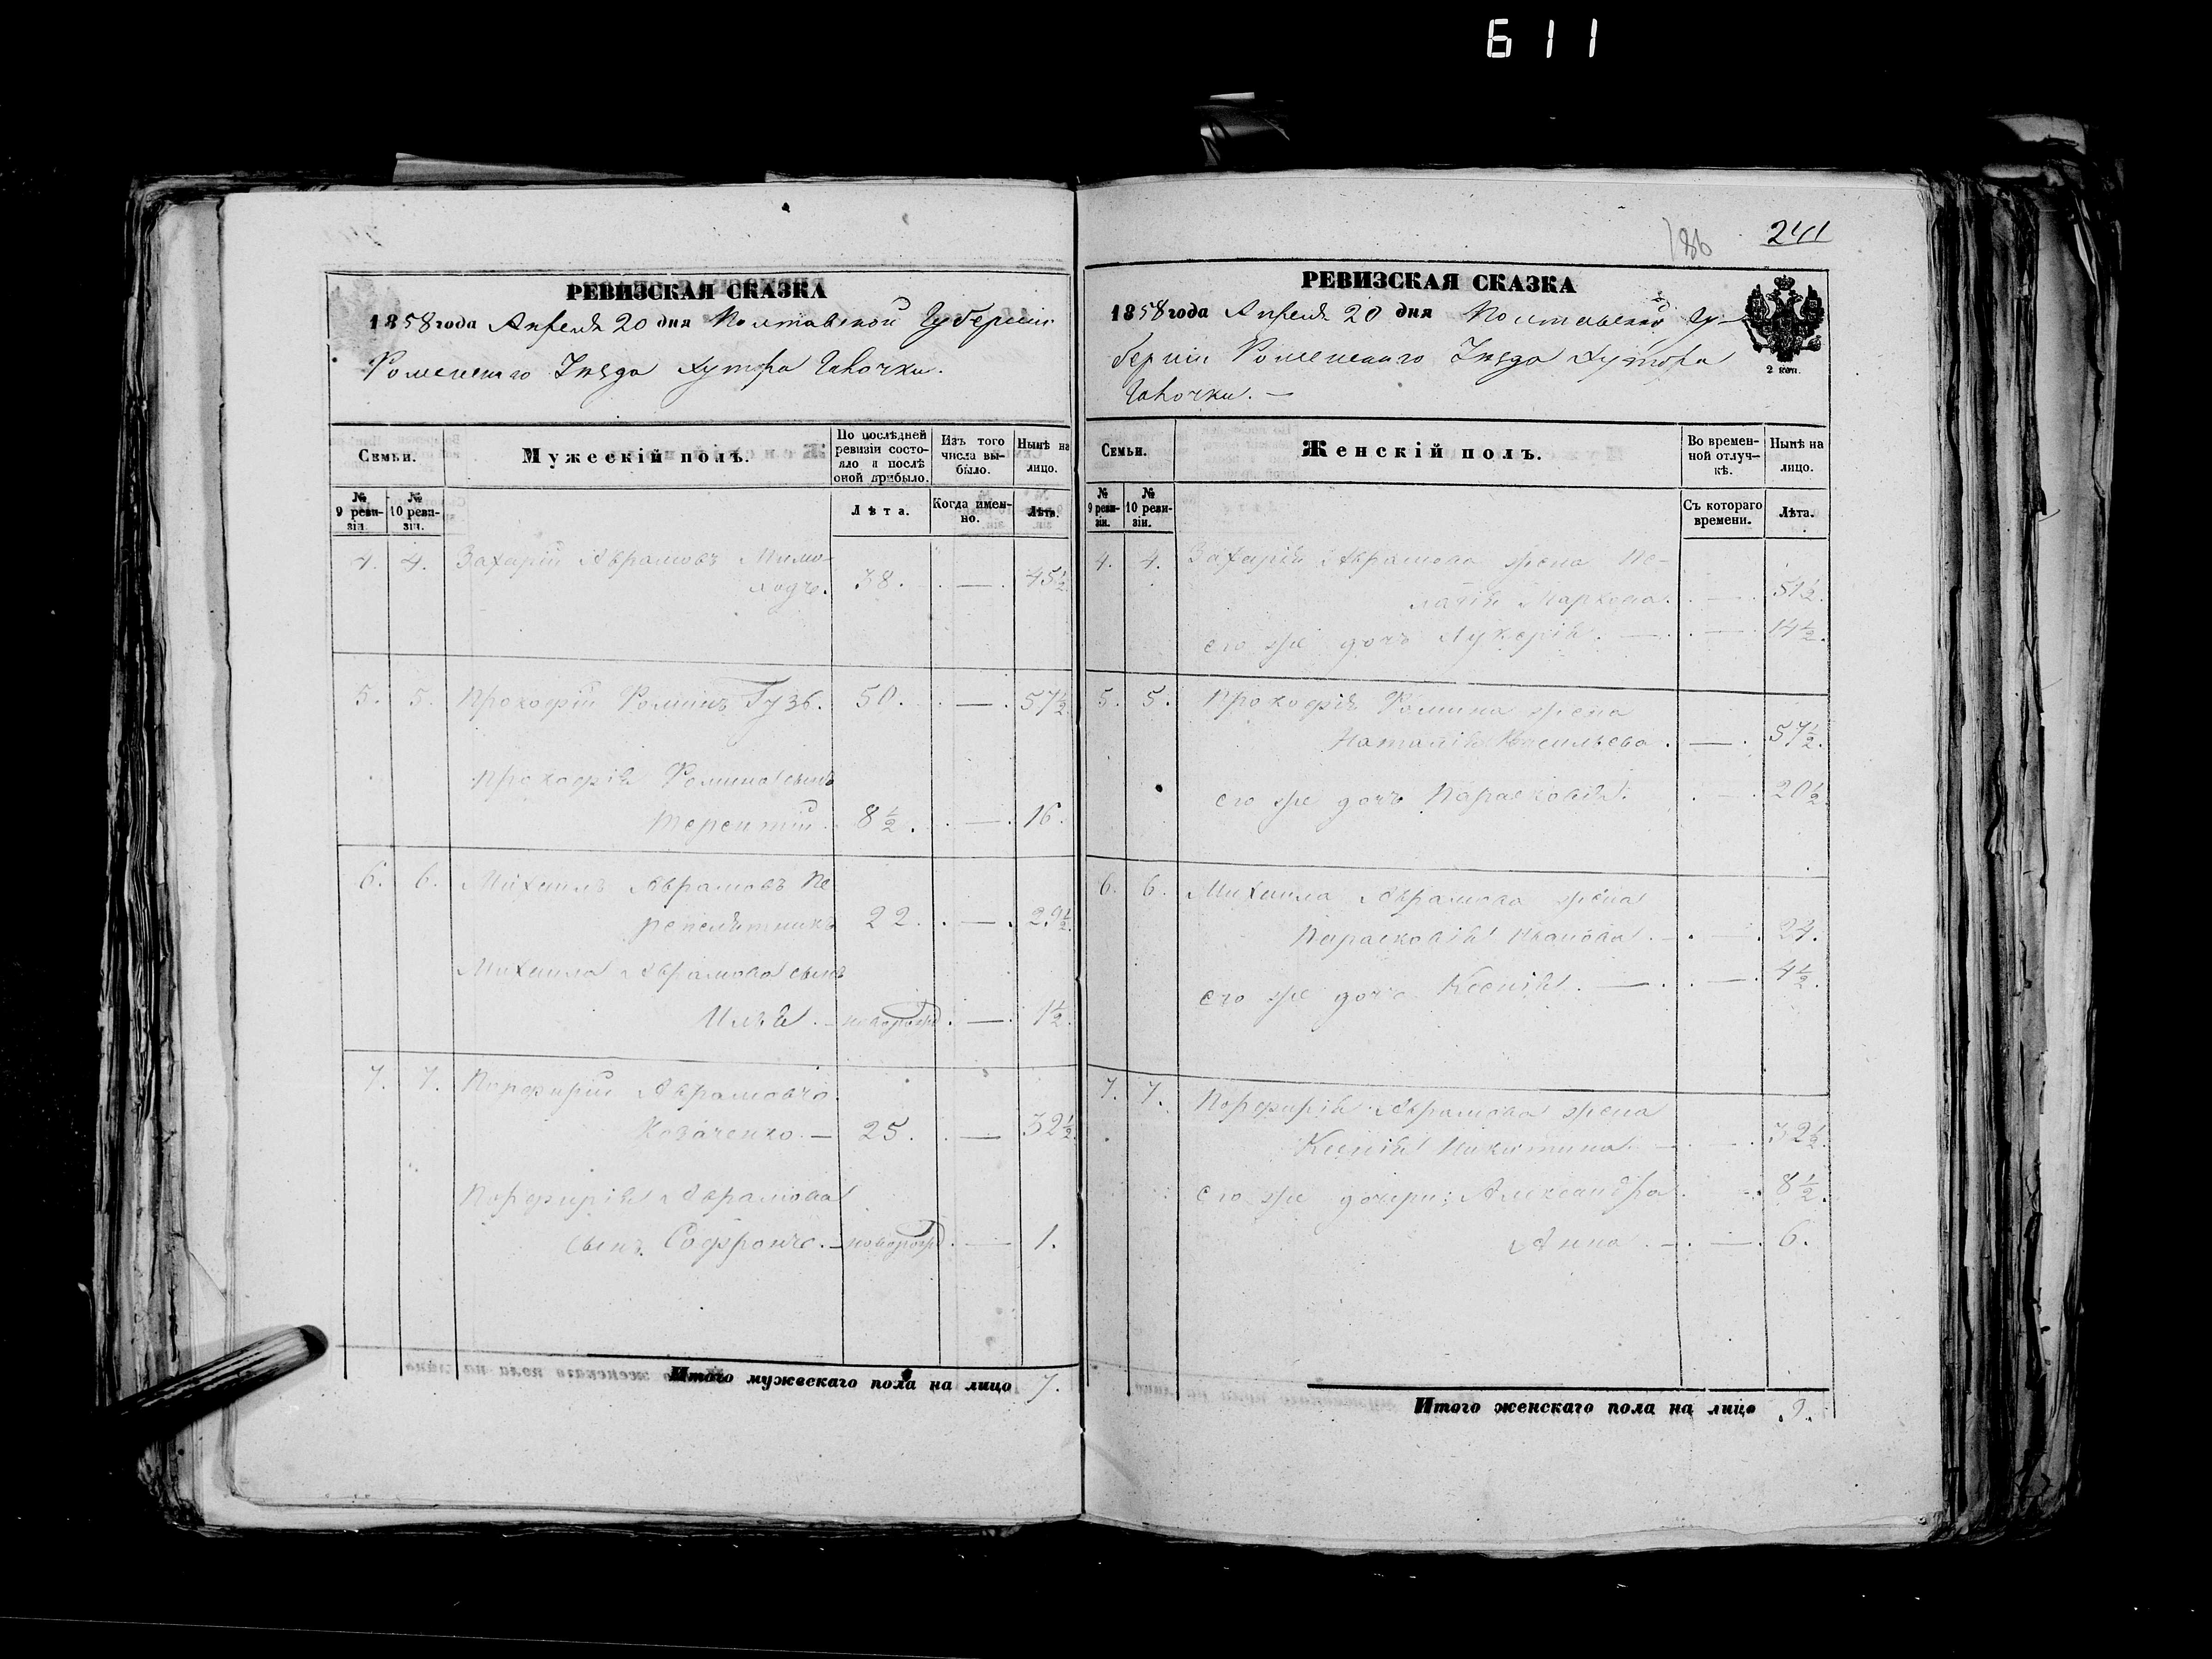 611
РЕВИЗСКАЯ СКАЗКА
1858 года Апреля 20 дня Полтавской Губерніи
Роменскаго Уезда Хутора
Семьи.
Мужескій полъ.
По послѣдней ревизіи состояло и послѣ оной прибыло.
Изъ того числа выбыло.
Нынѣ на лицо.
№ 9 ревизіи.
№ 10 ревизіи.
Лѣта.
Когда именно.
Лѣта.
4. 4. Захарій Аврамовъ Мимо-
ходъ. 38. — 45½
5. 5. Прокофій Фоминъ Гузь. 50. — 57½
Прокофія Фомина сынъ
Терентій. 8½. — 16.
6. 6. Михаилъ Аврамовъ Пе
репелятникъ 22. — 29½.
Михаила Аврамова сынъ
Илья. — новорожд. — 1½.
7. 7. Порфирій Аврамовъ
Козаченко. — 25. — 32½.
Порфирія Аврамова
сынъ Софронъ. — новорожд. — 1.
Итого мужескаго пола на лицо 7.
186
241
РЕВИЗСКАЯ СКАЗКА
1858 года Апреля 20 дня Полтавской Гу-
берніи Роменскаго Уезда Хутора
2 коп.
Семьи.
Женскій полъ.
Во временной отлучкѣ.
Нынѣ на лицо.
№ 9 ревизіи.
№ 10 ревизіи.
Съ котораго времени.
Лѣта.
4. 4. Захарія Аврамова жена Пе-
лагія Маркова. — 51½.
его же дочь Лукерія. — — 14½.
5. 5. Прокофія Фомина жена
Наталія Васильева. — 57½.
его же дочь Парасковія. — 20½
6. 6. Михаила Аврамова жена
Парасковія Иванова. — — 24.
его же дочь Ксенія. — — 4½.
7. 7. Порфирія Аврамова жена
Ксенія Никитина. — — 32½.
его же дочери: Александра. — 8½.
Анна. — — 6.
Итого женскаго пола на лицо 9.